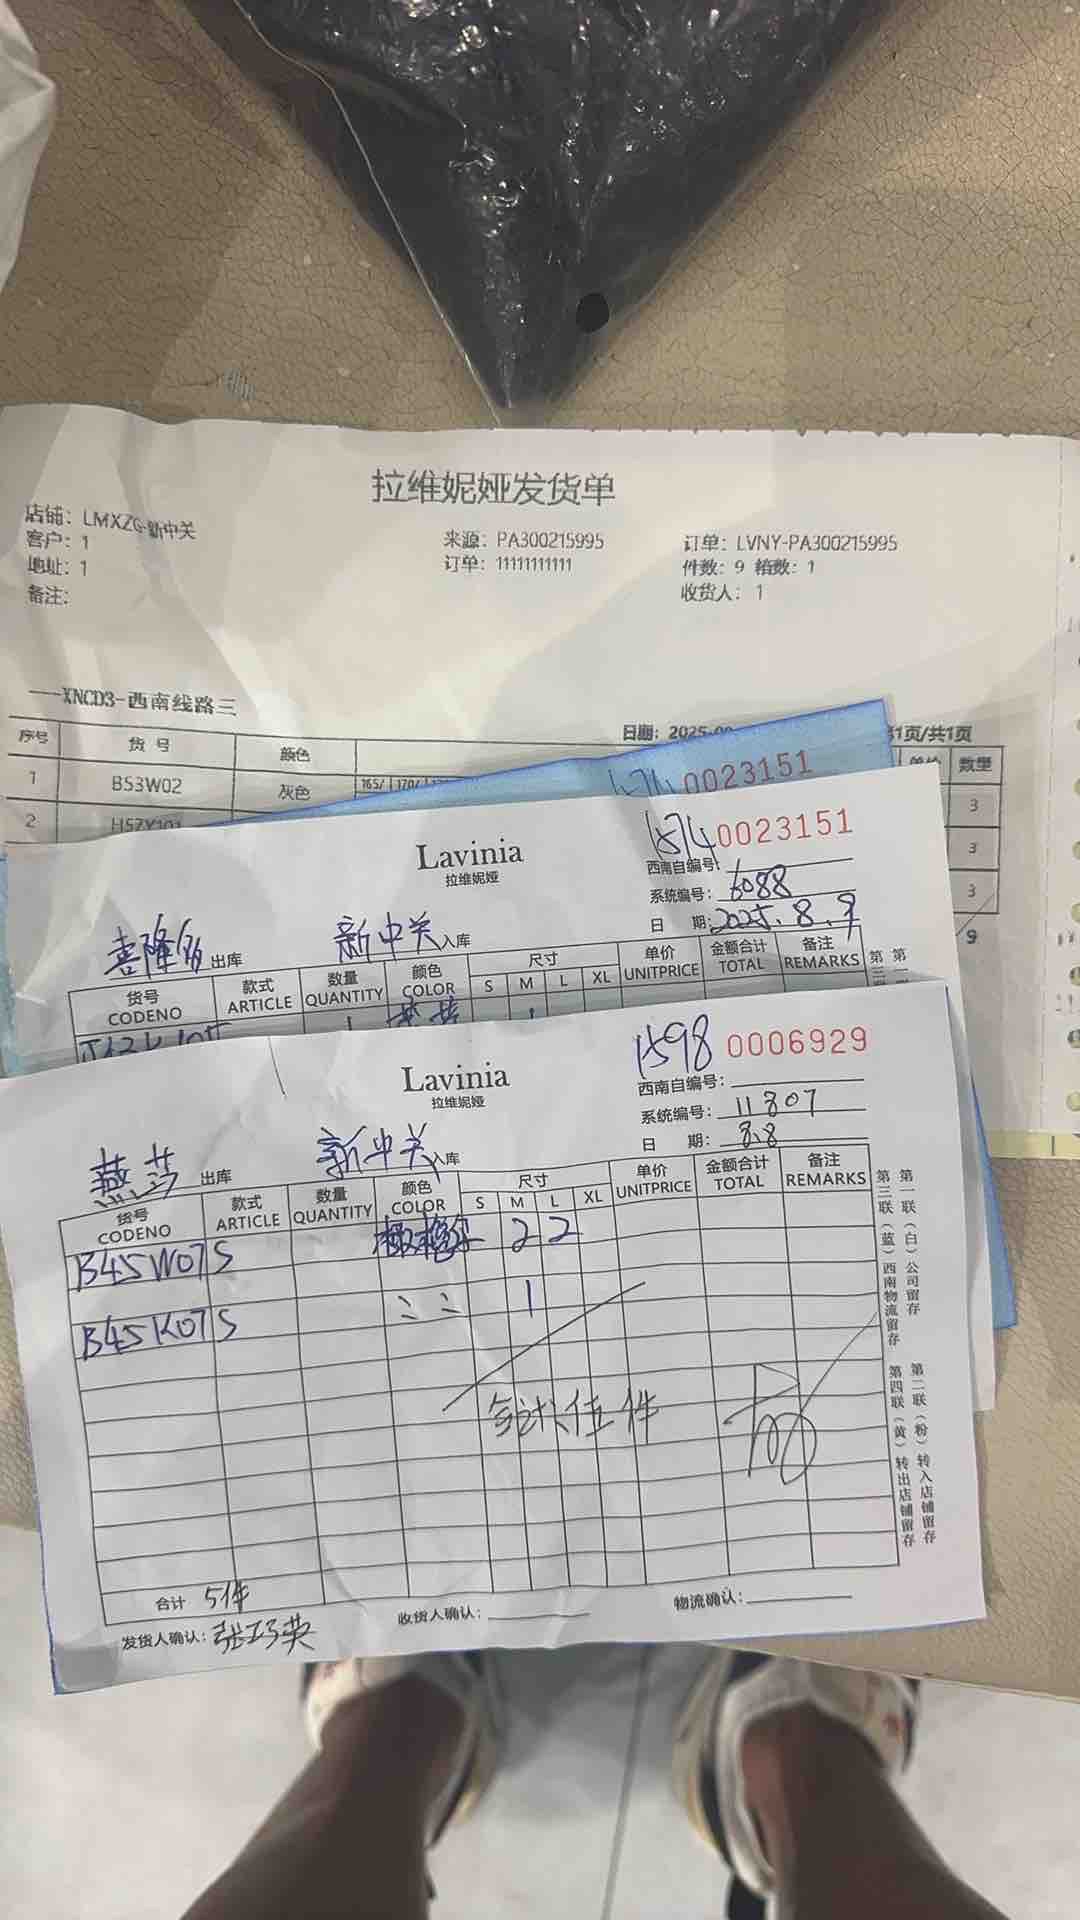 拉维妮娅发货单
店铺: LMXZG-新中关
客户: 1
地址: 1
备注:
来源: PA300215995
订单: 11111111111
订单: LVNY-PA300215995
件数: 9 箱数: 1
收货人: 1
XNCD3-西南线路三
日期: 2025-
页/共1页
序号 货号 颜色 单价 数量
1 B53W02 灰色 165/ 170/ 3
2 3
3
9
0023151
Lavinia
拉维妮娅
1574 0023151
西南自编号:
系统编号: 6088
日 期: 2025.8.9
喜隆多 出库 新中关 入库
货号 CODENO 款式 ARTICLE 数量 QUANTITY 颜色 COLOR 尺寸 S M L XL 单价 UNITPRICE 金额合计 TOTAL 备注 REMARKS
1 1
第三 第一
Lavinia
拉维妮娅
1598 0006929
西南自编号:
系统编号: 11807
日 期: 8.8
燕莎 出库 新中关 入库
货号 CODENO 款式 ARTICLE 数量 QUANTITY 颜色 COLOR 尺寸 S M L XL 单价 UNITPRICE 金额合计 TOTAL 备注 REMARKS
B45W07S 2 2
B45K07S 1
合计伍件
第一联(白)公司留存
第二联(粉)转入店铺留存
第三联(蓝)西南物流留存
第四联(黄)转出店铺留存
合计 5件
发货人确认: 张巧英
收货人确认:
物流确认: